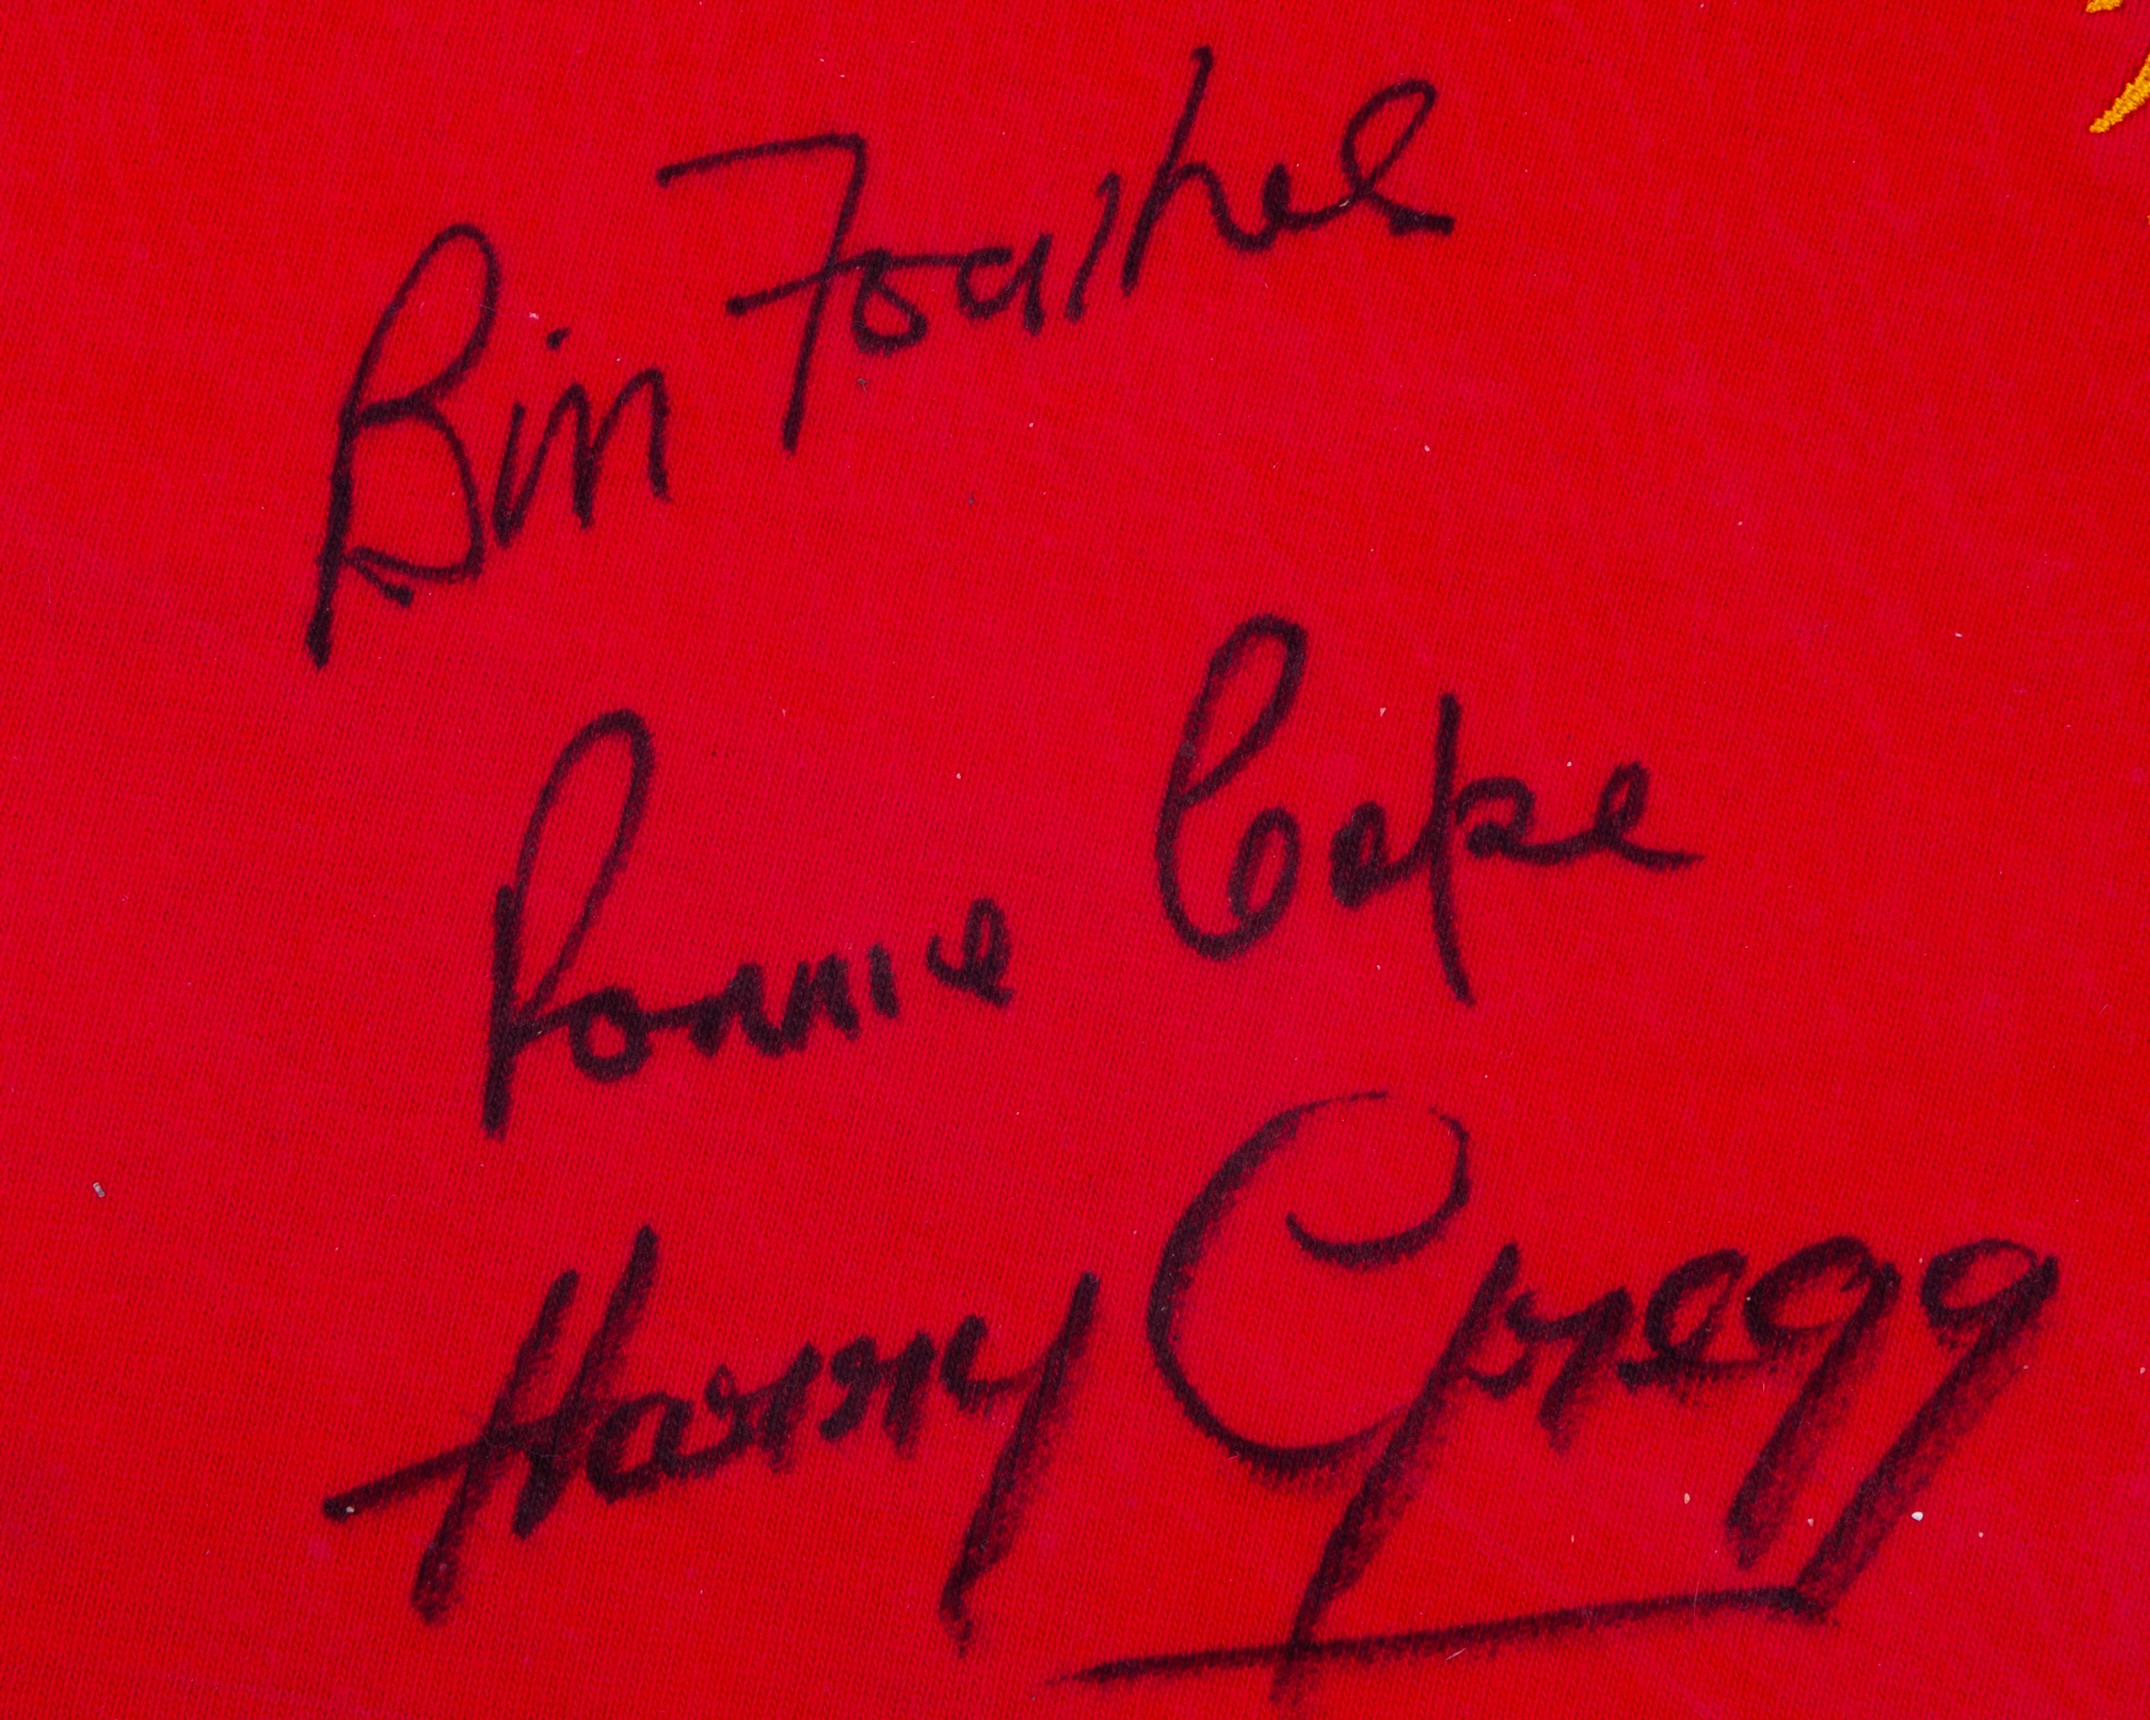 Bill Foulkes
Ronnie Cope
Harry Gregg